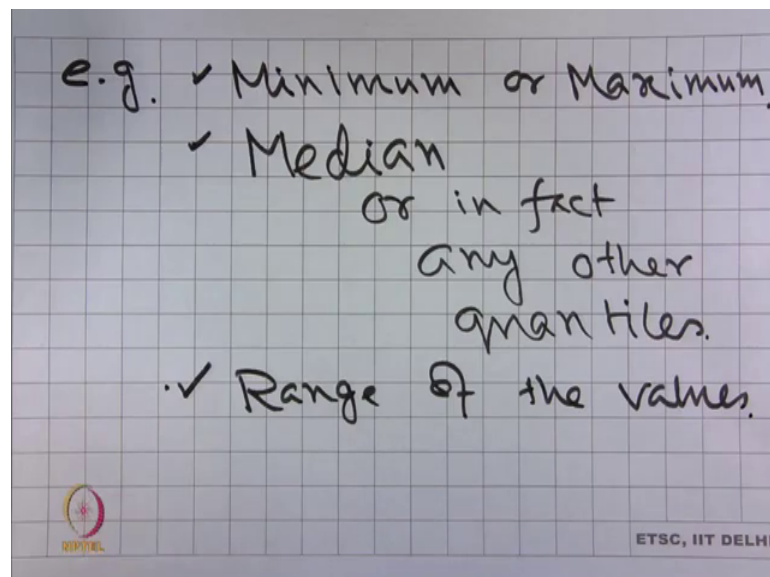 e.g. ✓ Minimum or Maximum.
✓ Median
or in fact
any other
quantiles.
✓ Range of the values.
NPTEL
ETSC, IIT DELHI